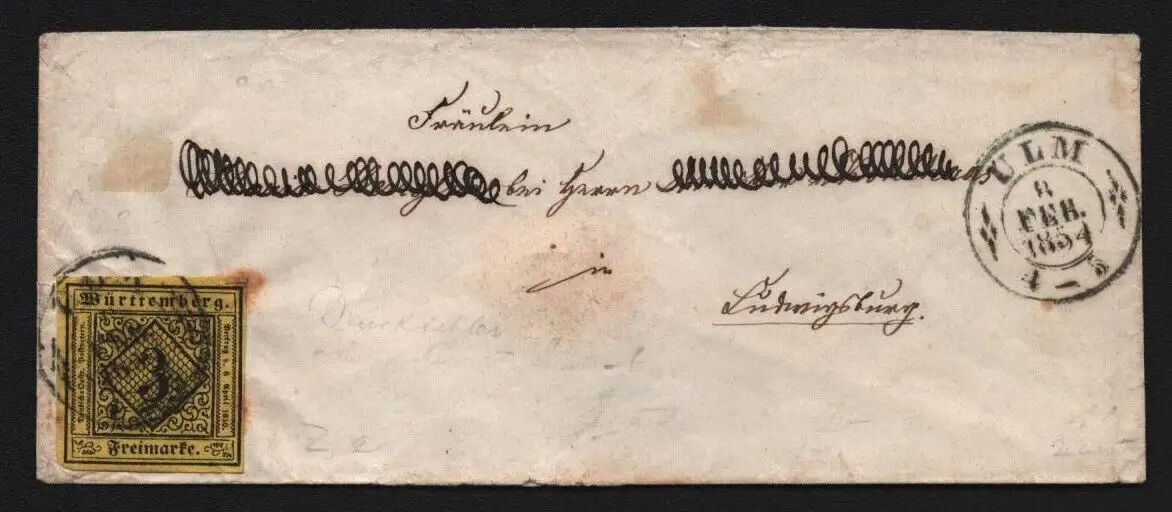 Fräulein
bei Herrn
in
Ludwigsburg.
ULM
8
FEB.
1854
4 - 5
Württemberg.
Deutsch-Oest. Postverein.
3
Vertrag v. 6 April 1850.
Freimarke.
Druckfehler